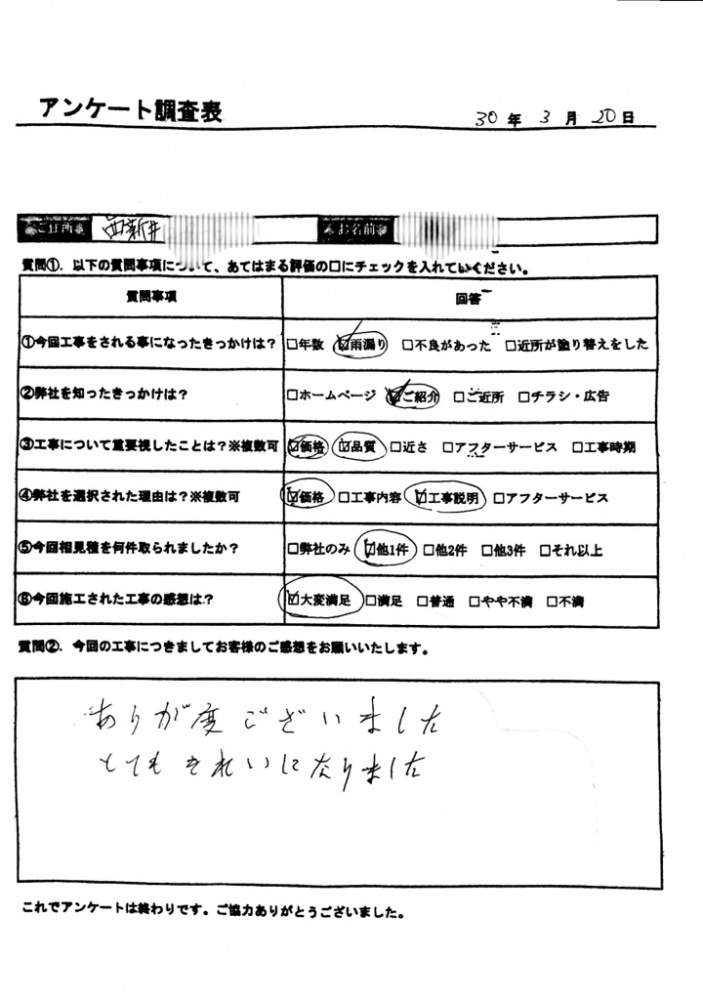 アンケート調査表
30年 3月 20日
ご住所 西新井 お名前
質問①. 以下の質問事項について、あてはまる評価の□にチェックを入れてください。
質問事項 回答
①今回工事をされる事になったきっかけは? □年数 ☑雨漏り □不良があった □近所が塗り替えをした
②弊社を知ったきっかけは? □ホームページ ☑ご紹介 □ご近所 □チラシ・広告
③工事について重要視したことは?※複数可 ☑価格 ☑品質 □近さ □アフターサービス □工事時期
④弊社を選択された理由は?※複数可 ☑価格 □工事内容 ☑工事説明 □アフターサービス
⑤今回相見積を何件取られましたか? □弊社のみ ☑他1件 □他2件 □他3件 □それ以上
⑥今回施工された工事の感想は? ☑大変満足 □満足 □普通 □やや不満 □不満
質問②. 今回の工事につきましてお客様のご感想をお願いいたします。
ありが度ございました
とてもきれいになりました
これでアンケートは終わりです。ご協力ありがとうございました。